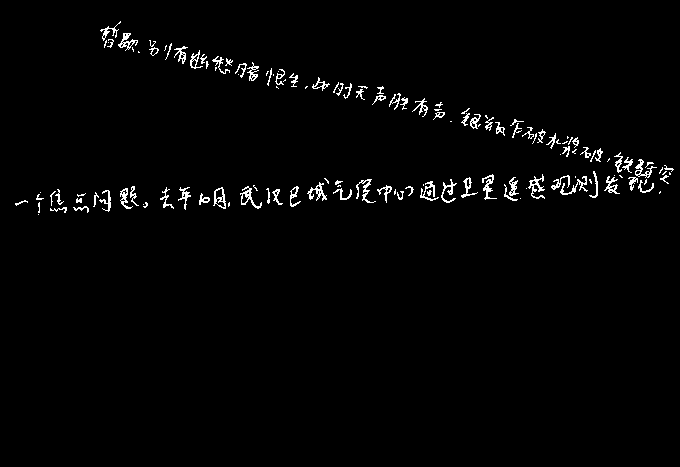 暂歇.别有幽愁暗恨生,此时无声胜有声.银瓶乍破水浆破,铁骑突
一个焦点问题。去年10月,武汉区域气候中心通过卫星遥感观测发现,